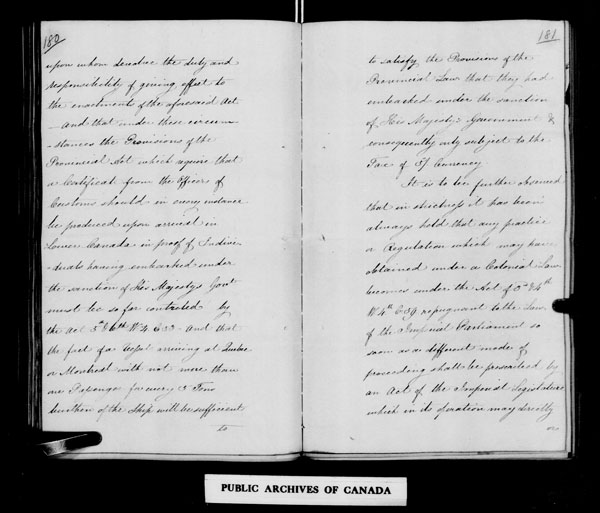 180
upon whom devolve the duty and
responsibility of giving effect to
the enactments of the aforesaid Act
– And that under these circum
-stances the Provisions of the
Provincial Act which require that
a Certificate from the Officer of
Customs should in every instance
be produced upon arrival in
Lower Canada in proof of Indivi-
-duals having embarked under
the sanction of His Majestys Govt
must be so far controled by
the Act 5th & 6th Wm 4 C 53 And that
the fact of a Vessel arriving at Quebec
or Montreal with not more than
one Passenger for every 5 Tons
burthen of the Ship will be sufficient
to
181
to satisfy the Provisions of the
Provincial Law that they had
embarked under the sanction
of His Majesty's Government &
consequently only subject to the
Tax of 5/ Currency
It is to be further observed
that in strictness it has been
always held that any practice
or Regulation which may have
obtained under a Colonial Law
becomes under the Act of 3d & 4th
W 4th C 59 repugnant to the Law
of the Imperial Parliament so
soon as a different mode of
proceeding shall be prescribed by
an Act of the Imperial Legislature
which in its operation may directly
or
PUBLIC ARCHIVES OF CANADA